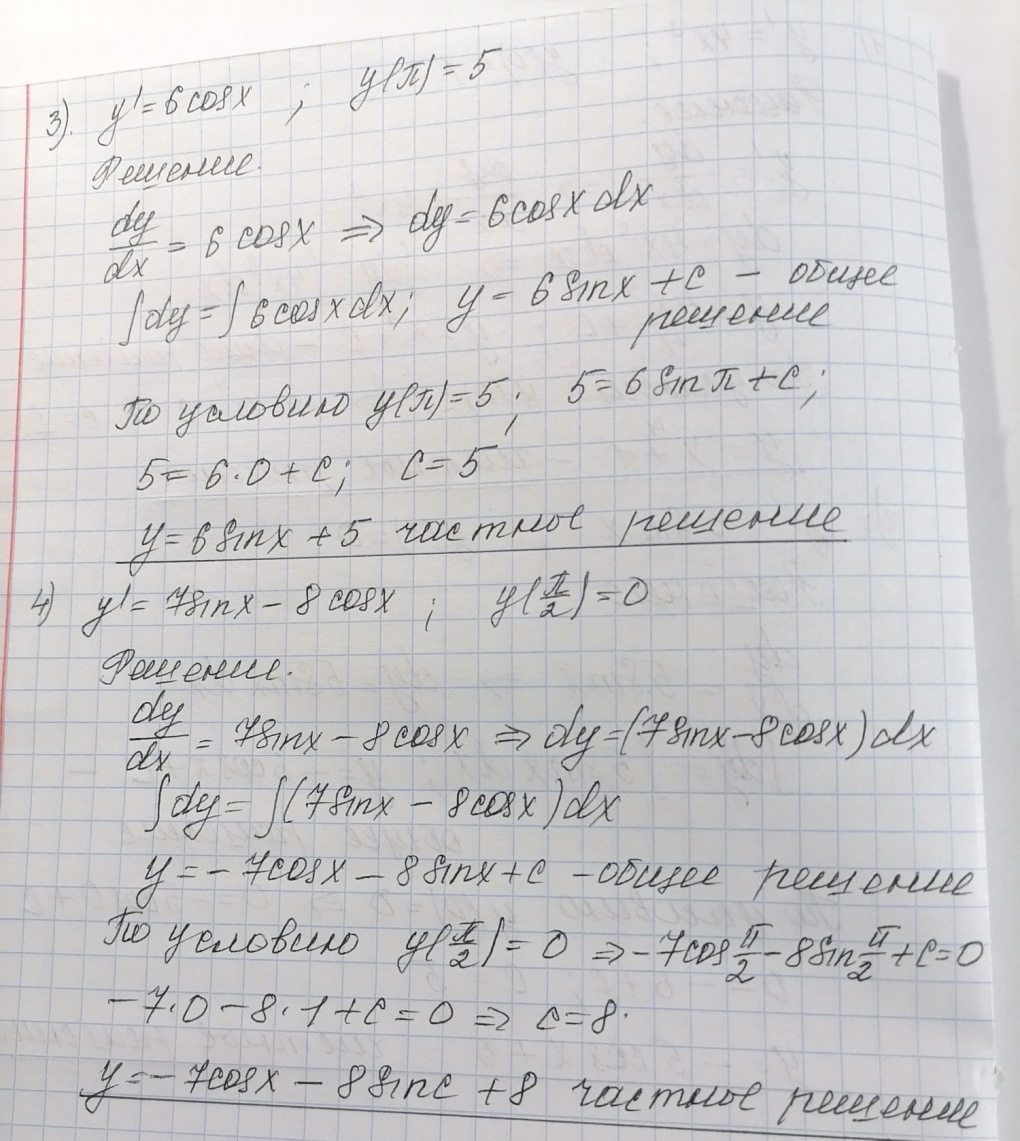 3). y' = 6 cosx ; y(π) = 5
Решение.
dy/dx = 6 cosx ⇒ dy = 6 cosx dx
∫dy = ∫6 cosx dx; y = 6 sinx + c – общее
решение
По условию y(π) = 5; 5 = 6 sin π + c;
5 = 6·0 + c; c = 5
y = 6 sinx + 5 частное решение
4) y' = 7sinx – 8 cosx ; y(π/2) = 0
Решение.
dy/dx = 7sinx – 8 cosx ⇒ dy = (7sinx – 8cosx) dx
∫dy = ∫(7sinx – 8cosx) dx
y = – 7cosx – 8 sinx + c – общее решение
По условию y(π/2) = 0 ⇒ – 7cos π/2 – 8 sin π/2 + c = 0
– 7·0 – 8·1 + c = 0 ⇒ c = 8.
y = – 7cosx – 8 sinc + 8 частное решение